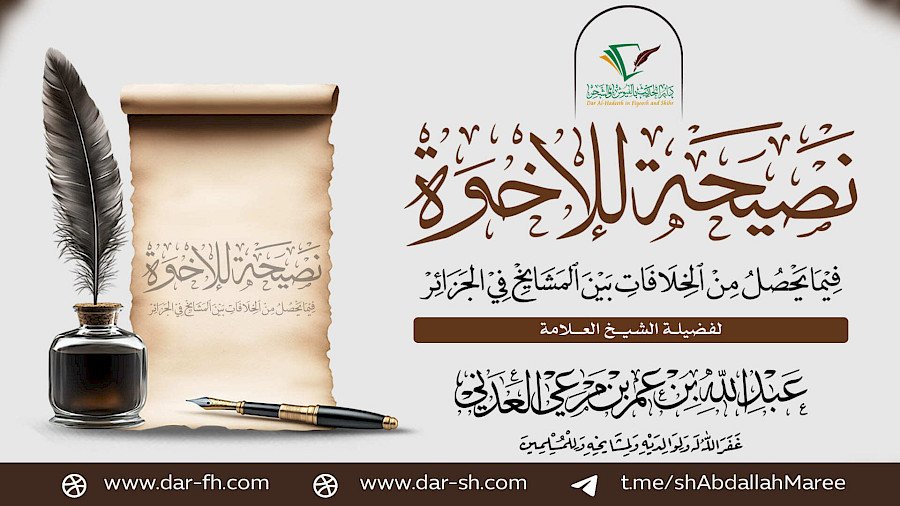 دار الحديث بالفيوش والشحر
Dar Al-Hadeeth in Fiyoosh and Shihr
نَصِيحَة لِلْإِخْوَة
فِيمَا يَحْصُلُ مِنَ الْخِلَافَاتِ بَيْنَ الْمَشَايِخِ فِي الْجَزَائِرِ
لفضيلة الشيخ العلامة
عَبْدِ اللَّهِ بْنِ عُمَرَ بْنِ مَرْعِي الْعَدَنِيِّ
غَفَرَ اللَّهُ لَهُ وَلِوَالِدَيْهِ وَلِمَشَايِخِهِ وَلِلْمُسْلِمِينَ
نَصِيحَة لِلْإِخْوَة
فِيمَا يَحْصُلُ مِنَ الْخِلَافَاتِ بَيْنَ الْمَشَايِخِ فِي الْجَزَائِرِ
www.dar-fh.com
www.dar-sh.com
t.me/shAbdallahMaree